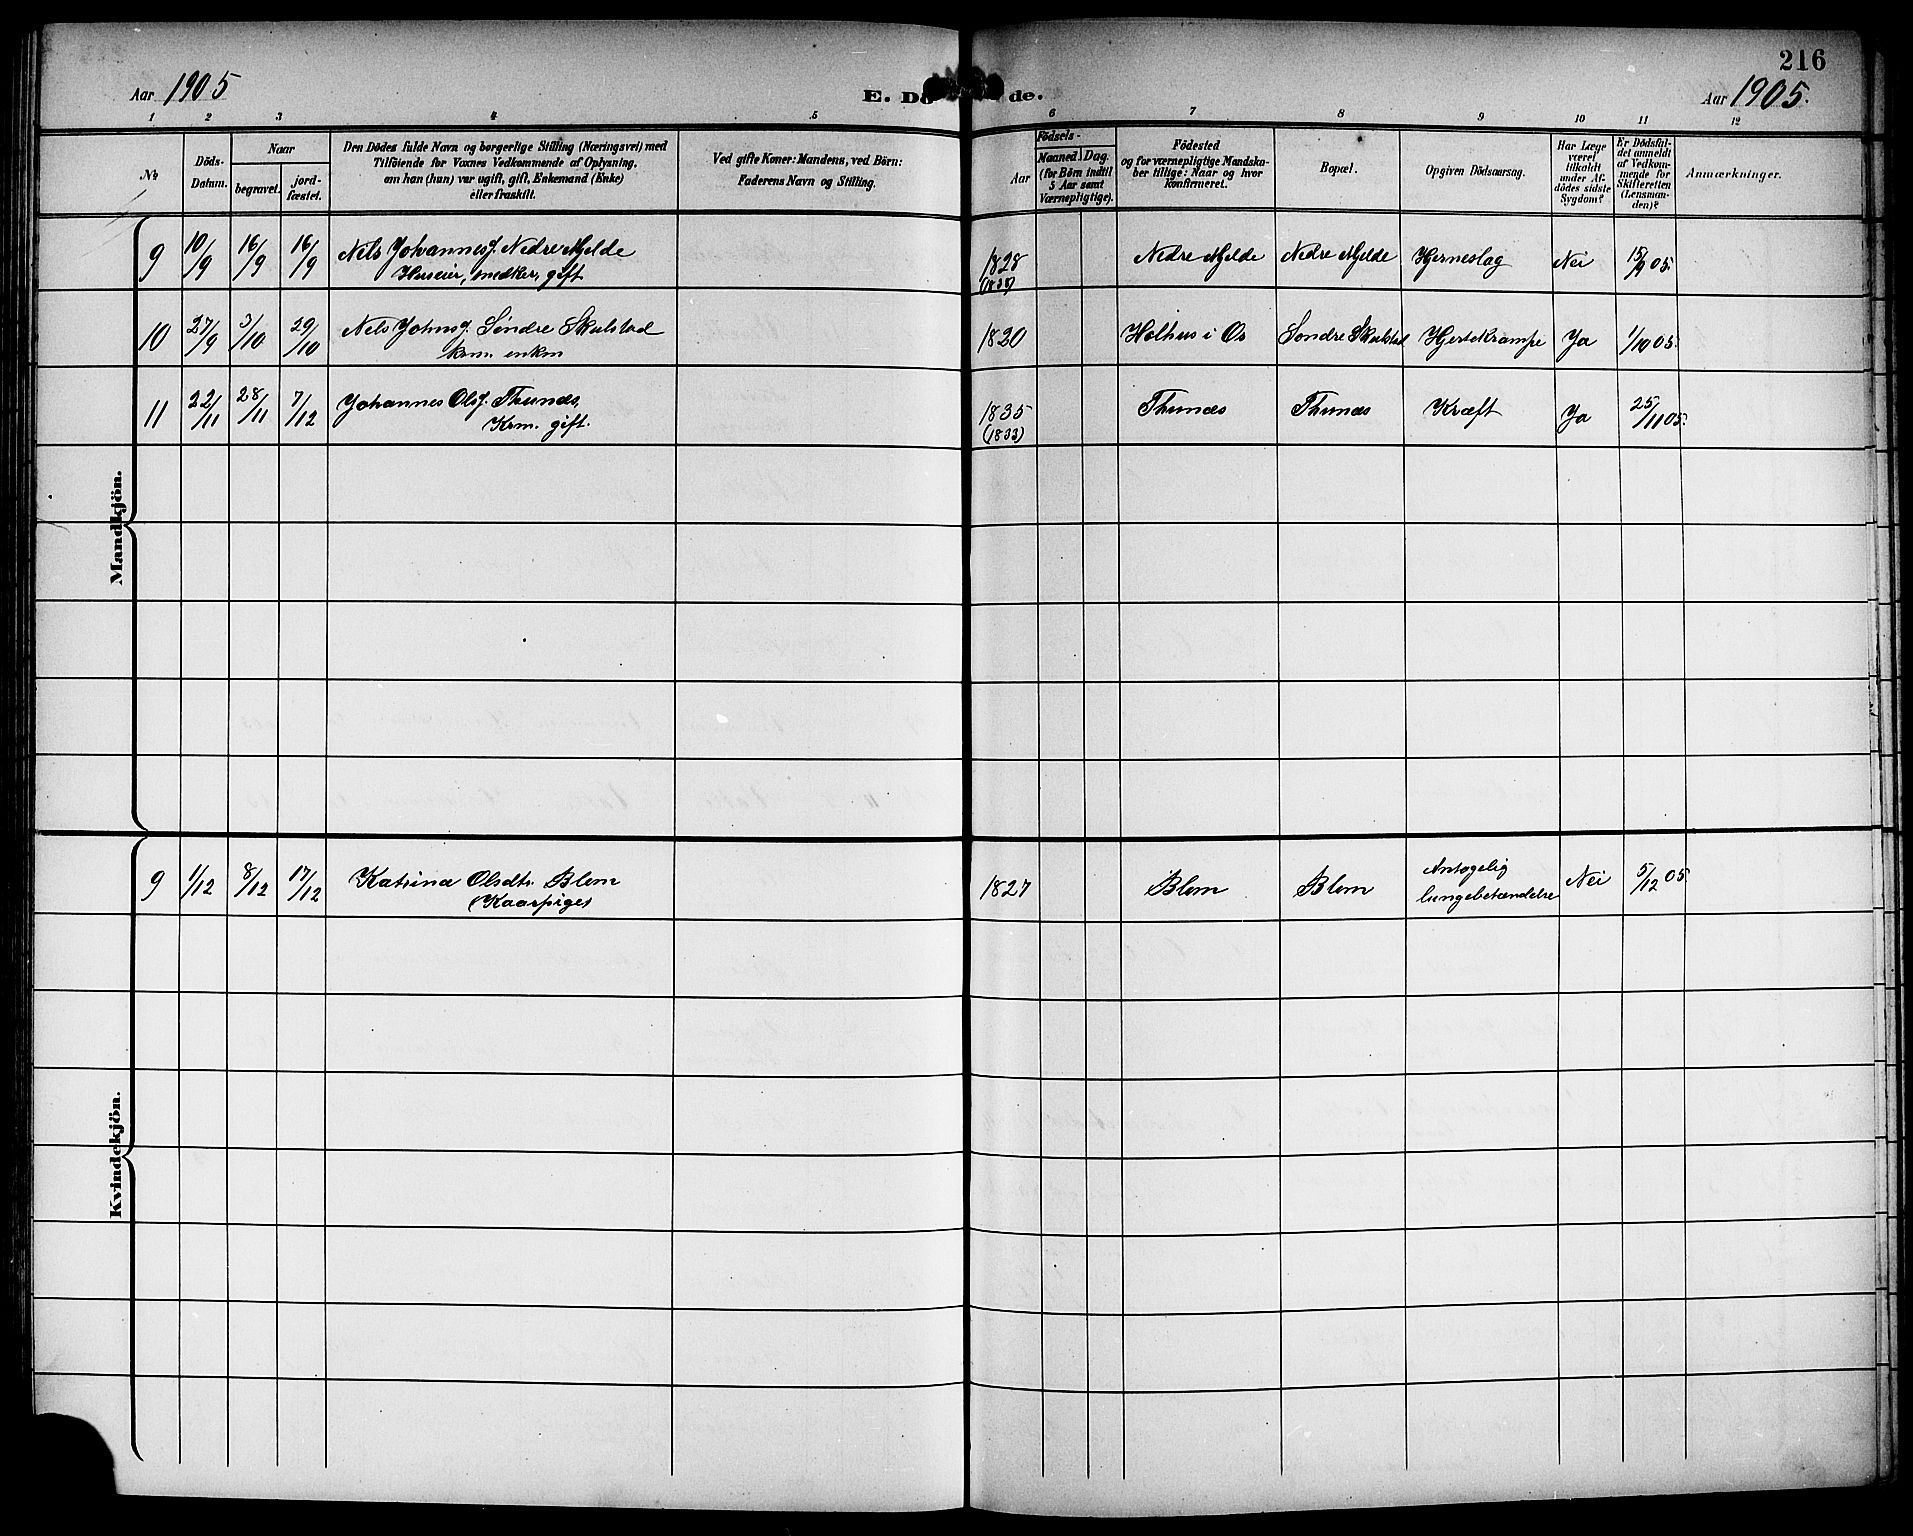 216
Aar 1905
E. Dö de.
Aar 1905.
1 2 3 4 5 6 7 8 9 10 11 12
№
Döds-Datum.
Naar
begravet.
jord-fæstet.
Den Dödes fulde Navn og borgerlige Stilling (Næringsvei) med
Tilföiende for Voxnes Vedkommende af Oplysning,
om han (hun) var ugift, gift, Enkemand (Enke)
eller fraskilt.
Ved gifte Koner: Mandens, ved Börn:
Faderens Navn og Stilling.
Födsels-
Aar
Maaned. Dag.
(for Börn indtil
5 Aar samt
Værnepligtige).
Födested
og for værnepligtige Mandska-
ber tillige: Naar og hvor
konfirmeret.
Bopæl.
Opgiven Dödsaarsag.
Har Læge
været
tilkaldt
under Af-
dödes sidste
Sygdom?
Er Dödsfal-
det anmeldt
af Vedkom-
mende for
Skifteretten
(Lensman-
den)?
Anmærkninger.
Mandkjön.
9 10/9 16/9 16/9 Nels Johannesf. Nedre Mjelde 1828 Nedre Mjelde Nedre Mjelde Hjerneslag Nei 15/9 05.
Huseier, snedker, gift
10 27/9 3/10 29/10 Nels Johnsf. Søndre Skulstad 1820 Holhus i Os Søndre Skulstad Hjertekrampe Ja 1/10 05.
krm. enkm
11 22/11 28/11 7/12 Johannes Olsf. Thunæs, 1835 Thunæs Thunæs Kræft Ja 25/11 05.
Krm. gift. (1833)
Kvindekjön.
9 1/12 8/12 17/12 Katrina Olsdtr. Blom 1827 Blom Blom Antagelig lungebetændelse Nei 5/12 05
(Kaarpige)